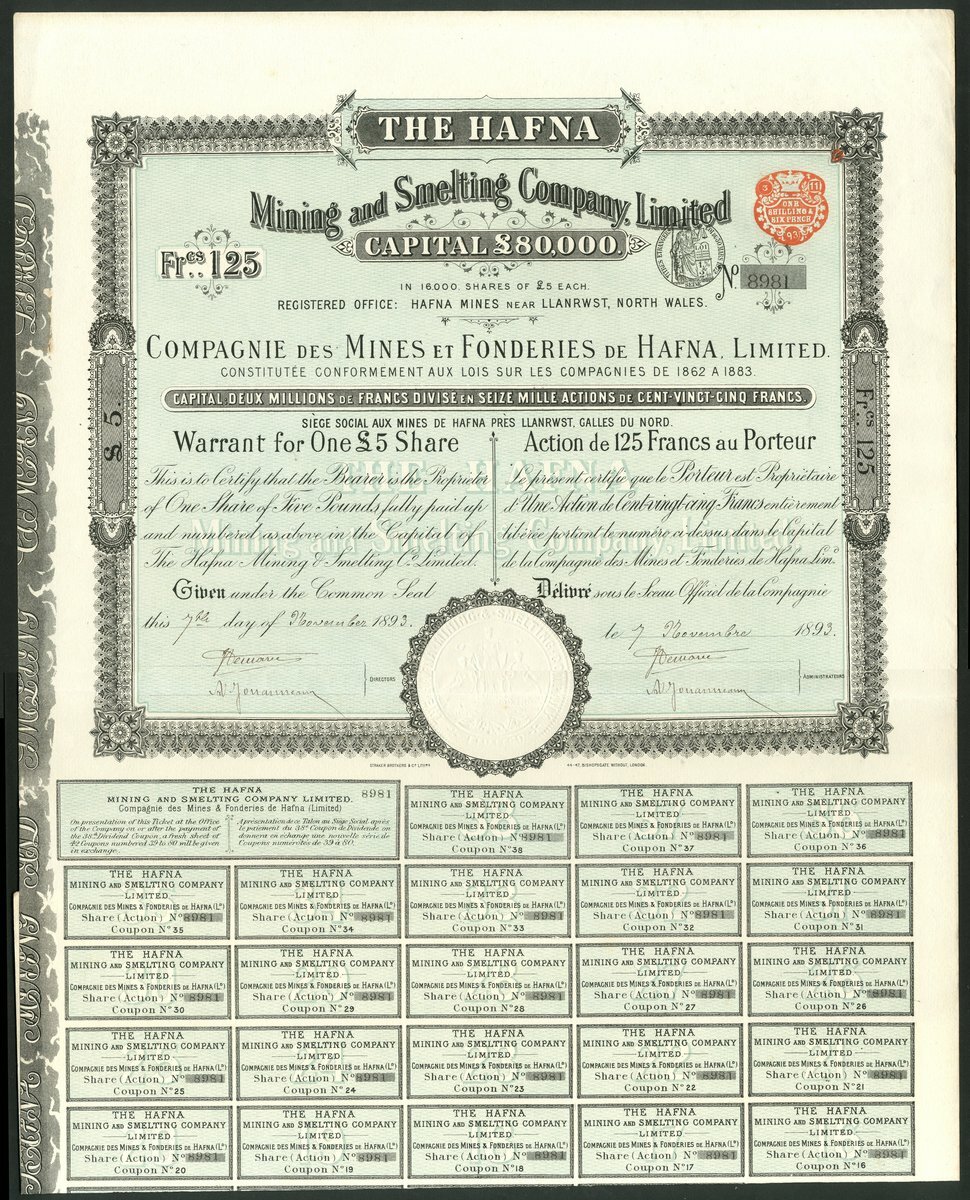 THE HAFNA
Mining and Smelting Company, Limited
CAPITAL £80,000.
Frcs 125
3 11
ONE
SHILLING &
SIX PENCE
93
No. 8981
IN 16000. SHARES OF £5 EACH.
REGISTERED OFFICE: HAFNA MINES NEAR LLANRWST, NORTH WALES.
COMPAGNIE DES MINES ET FONDERIES DE HAFNA, LIMITED.
CONSTITUTÉE CONFORMEMENT AUX LOIS SUR LES COMPAGNIES DE 1862 A 1883.
CAPITAL: DEUX MILLIONS DE FRANCS DIVISÉ EN SEIZE MILLE ACTIONS DE CENT-VINGT-CINQ FRANCS.
SIÈGE SOCIAL AUX MINES DE HAFNA PRÈS LLANRWST, GALLES DU NORD.
£ 5.
Frcs 125
Warrant for One £5 Share
This is to Certify that the Bearer is the Proprietor
of One Share of Five Pounds fully paid up
and numbered as above in the Capital of
The Hafna Mining & Smelting Co. Limited.
Given under the Common Seal
this 7th day of November 1893.
DIRECTORS
Action de 125 Francs au Porteur
Le present certifie que le Porteur est Propriétaire
d'Une Action de Cent-vingt-cinq Francs entièrement
libérée portant le numéro ci-dessus dans le Capital
de la Compagnie des Mines et Fonderies de Hafna Limd.
Délivré sous le Sceau Officiel de la Compagnie
le 7 Novembre 1893.
ADMINISTRATEURS
THE HAFNA
Mining and Smelting Company, Limited
STRAKER BROTHERS & Co LIMTD
44-47, BISHOPSGATE WITHOUT, LONDON.
THE HAFNA
MINING AND SMELTING COMPANY LIMITED.
8981
Compagnie des Mines & Fonderies de Hafna (Limited)
On presentation of this Ticket at the Office
of the Company on or after the payment of
the 38th Dividend Coupon, a fresh sheet of
42 Coupons numbered 39 to 80 will be given
in exchange.
Apresentation de ce Talon au Siège Social après
le paiement du 38e Coupon de Dividende on
donnera en échange une nouvelle série de
Coupons numérotés de 39 à 80.
THE HAFNA
MINING AND SMELTING COMPANY
LIMITED
COMPAGNIE DES MINES & FONDERIES DE HAFNA (Ld)
Share (Action) No 8981
Coupon No 38
THE HAFNA
MINING AND SMELTING COMPANY
LIMITED
COMPAGNIE DES MINES & FONDERIES DE HAFNA (Ld)
Share (Action) No 8981
Coupon No 37
THE HAFNA
MINING AND SMELTING COMPANY
LIMITED
COMPAGNIE DES MINES & FONDERIES DE HAFNA (Ld)
Share (Action) No 8981
Coupon No 36
THE HAFNA
MINING AND SMELTING COMPANY
LIMITED
COMPAGNIE DES MINES & FONDERIES DE HAFNA (Ld)
Share (Action) No 8981
Coupon No 35
THE HAFNA
MINING AND SMELTING COMPANY
LIMITED
COMPAGNIE DES MINES & FONDERIES DE HAFNA (Ld)
Share (Action) No 8981
Coupon No 34
THE HAFNA
MINING AND SMELTING COMPANY
LIMITED
COMPAGNIE DES MINES & FONDERIES DE HAFNA (Ld)
Share (Action) No 8981
Coupon No 33
THE HAFNA
MINING AND SMELTING COMPANY
LIMITED
COMPAGNIE DES MINES & FONDERIES DE HAFNA (Ld)
Share (Action) No 8981
Coupon No 32
THE HAFNA
MINING AND SMELTING COMPANY
LIMITED
COMPAGNIE DES MINES & FONDERIES DE HAFNA (Ld)
Share (Action) No 8981
Coupon No 31
THE HAFNA
MINING AND SMELTING COMPANY
LIMITED
COMPAGNIE DES MINES & FONDERIES DE HAFNA (Ld)
Share (Action) No 8981
Coupon No 30
THE HAFNA
MINING AND SMELTING COMPANY
LIMITED
COMPAGNIE DES MINES & FONDERIES DE HAFNA (Ld)
Share (Action) No 8981
Coupon No 29
THE HAFNA
MINING AND SMELTING COMPANY
LIMITED
COMPAGNIE DES MINES & FONDERIES DE HAFNA (Ld)
Share (Action) No 8981
Coupon No 28
THE HAFNA
MINING AND SMELTING COMPANY
LIMITED
COMPAGNIE DES MINES & FONDERIES DE HAFNA (Ld)
Share (Action) No 8981
Coupon No 27
THE HAFNA
MINING AND SMELTING COMPANY
LIMITED
COMPAGNIE DES MINES & FONDERIES DE HAFNA (Ld)
Share (Action) No 8981
Coupon No 26
THE HAFNA
MINING AND SMELTING COMPANY
LIMITED
COMPAGNIE DES MINES & FONDERIES DE HAFNA (Ld)
Share (Action) No 8981
Coupon No 25
THE HAFNA
MINING AND SMELTING COMPANY
LIMITED
COMPAGNIE DES MINES & FONDERIES DE HAFNA (Ld)
Share (Action) No 8981
Coupon No 24
THE HAFNA
MINING AND SMELTING COMPANY
LIMITED
COMPAGNIE DES MINES & FONDERIES DE HAFNA (Ld)
Share (Action) No 8981
Coupon No 23
THE HAFNA
MINING AND SMELTING COMPANY
LIMITED
COMPAGNIE DES MINES & FONDERIES DE HAFNA (Ld)
Share (Action) No 8981
Coupon No 22
THE HAFNA
MINING AND SMELTING COMPANY
LIMITED
COMPAGNIE DES MINES & FONDERIES DE HAFNA (Ld)
Share (Action) No 8981
Coupon No 21
THE HAFNA
MINING AND SMELTING COMPANY
LIMITED
COMPAGNIE DES MINES & FONDERIES DE HAFNA (Ld)
Share (Action) No 8981
Coupon No 20
THE HAFNA
MINING AND SMELTING COMPANY
LIMITED
COMPAGNIE DES MINES & FONDERIES DE HAFNA (Ld)
Share (Action) No 8981
Coupon No 19
THE HAFNA
MINING AND SMELTING COMPANY
LIMITED
COMPAGNIE DES MINES & FONDERIES DE HAFNA (Ld)
Share (Action) No 8981
Coupon No 18
THE HAFNA
MINING AND SMELTING COMPANY
LIMITED
COMPAGNIE DES MINES & FONDERIES DE HAFNA (Ld)
Share (Action) No 8981
Coupon No 17
THE HAFNA
MINING AND SMELTING COMPANY
LIMITED
COMPAGNIE DES MINES & FONDERIES DE HAFNA (Ld)
Share (Action) No 8981
Coupon No 16